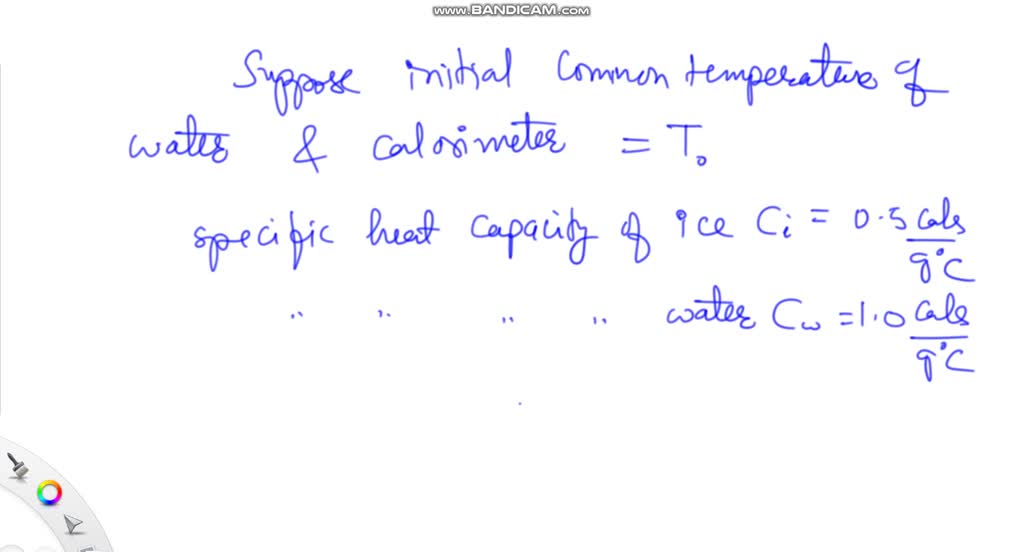 www.BANDICAM.com
Suppose initial common temperature of
water & calorimeter = T₀
specific heat capacity of ice Ci = 0.5 cals/g°C
" " " " water Cw = 1.0 cals/g°C